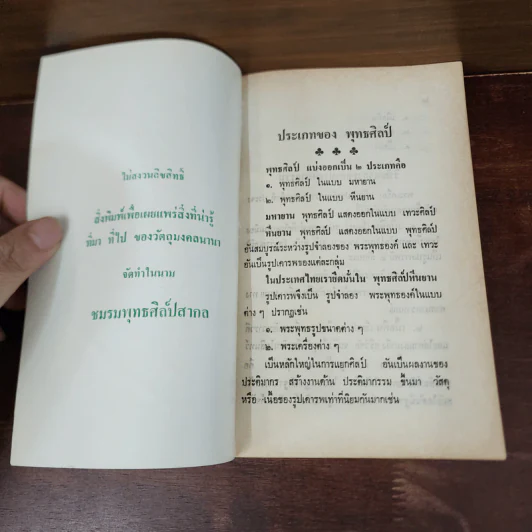 ไม่สงวนลิขสิทธิ์
สิ่งพิมพ์เพื่อเผยแพร่สิ่งที่น่ารู้
ที่มา ที่ไป ของวัตถุมงคลนานา
จัดทำในนาม
ชมรมพุทธศิลป์สากล
ประเภทของ พุทธศิลป์
♣ ♣ ♣
พุทธศิลป์ แบ่งออกเป็น ๒ ประเภทคือ
๑. พุทธศิลป์ ในแบบ มหายาน
๒. พุทธศิลป์ ในแบบ หีนยาน
มหายาน พุทธศิลป์ แสดงออกในแบบ เทวะศิลป์
หีนยาน พุทธศิลป์ แสดงออกในแบบ พุทธศิลป์
อันสมบูรณ์ระหว่างรูปจำลองของ พระพุทธองค์ และ เทวะ
อันเป็นรูปเคารพของแต่ละกลุ่ม
ในประเทศไทยเรายึดมั่นใน พุทธศิลป์หีนยาน
รูปเคารพจึงเป็น รูปจำลอง พระพุทธองค์ในแบบ
ต่าง ๆ ปรากฏเช่น
๑. พระพุทธรูปขนาดต่าง ๆ
๒. พระเครื่องต่าง ๆ
เป็นหลักใหญ่ในการแยกศิลป์ อันเป็นผลงานของ
ประติมากร สร้างงานด้าน ประติมากรรม ขึ้นมา วัสดุ
หรือ เนื้อของรูปเคารพเท่าที่นิยมกันมากเช่น